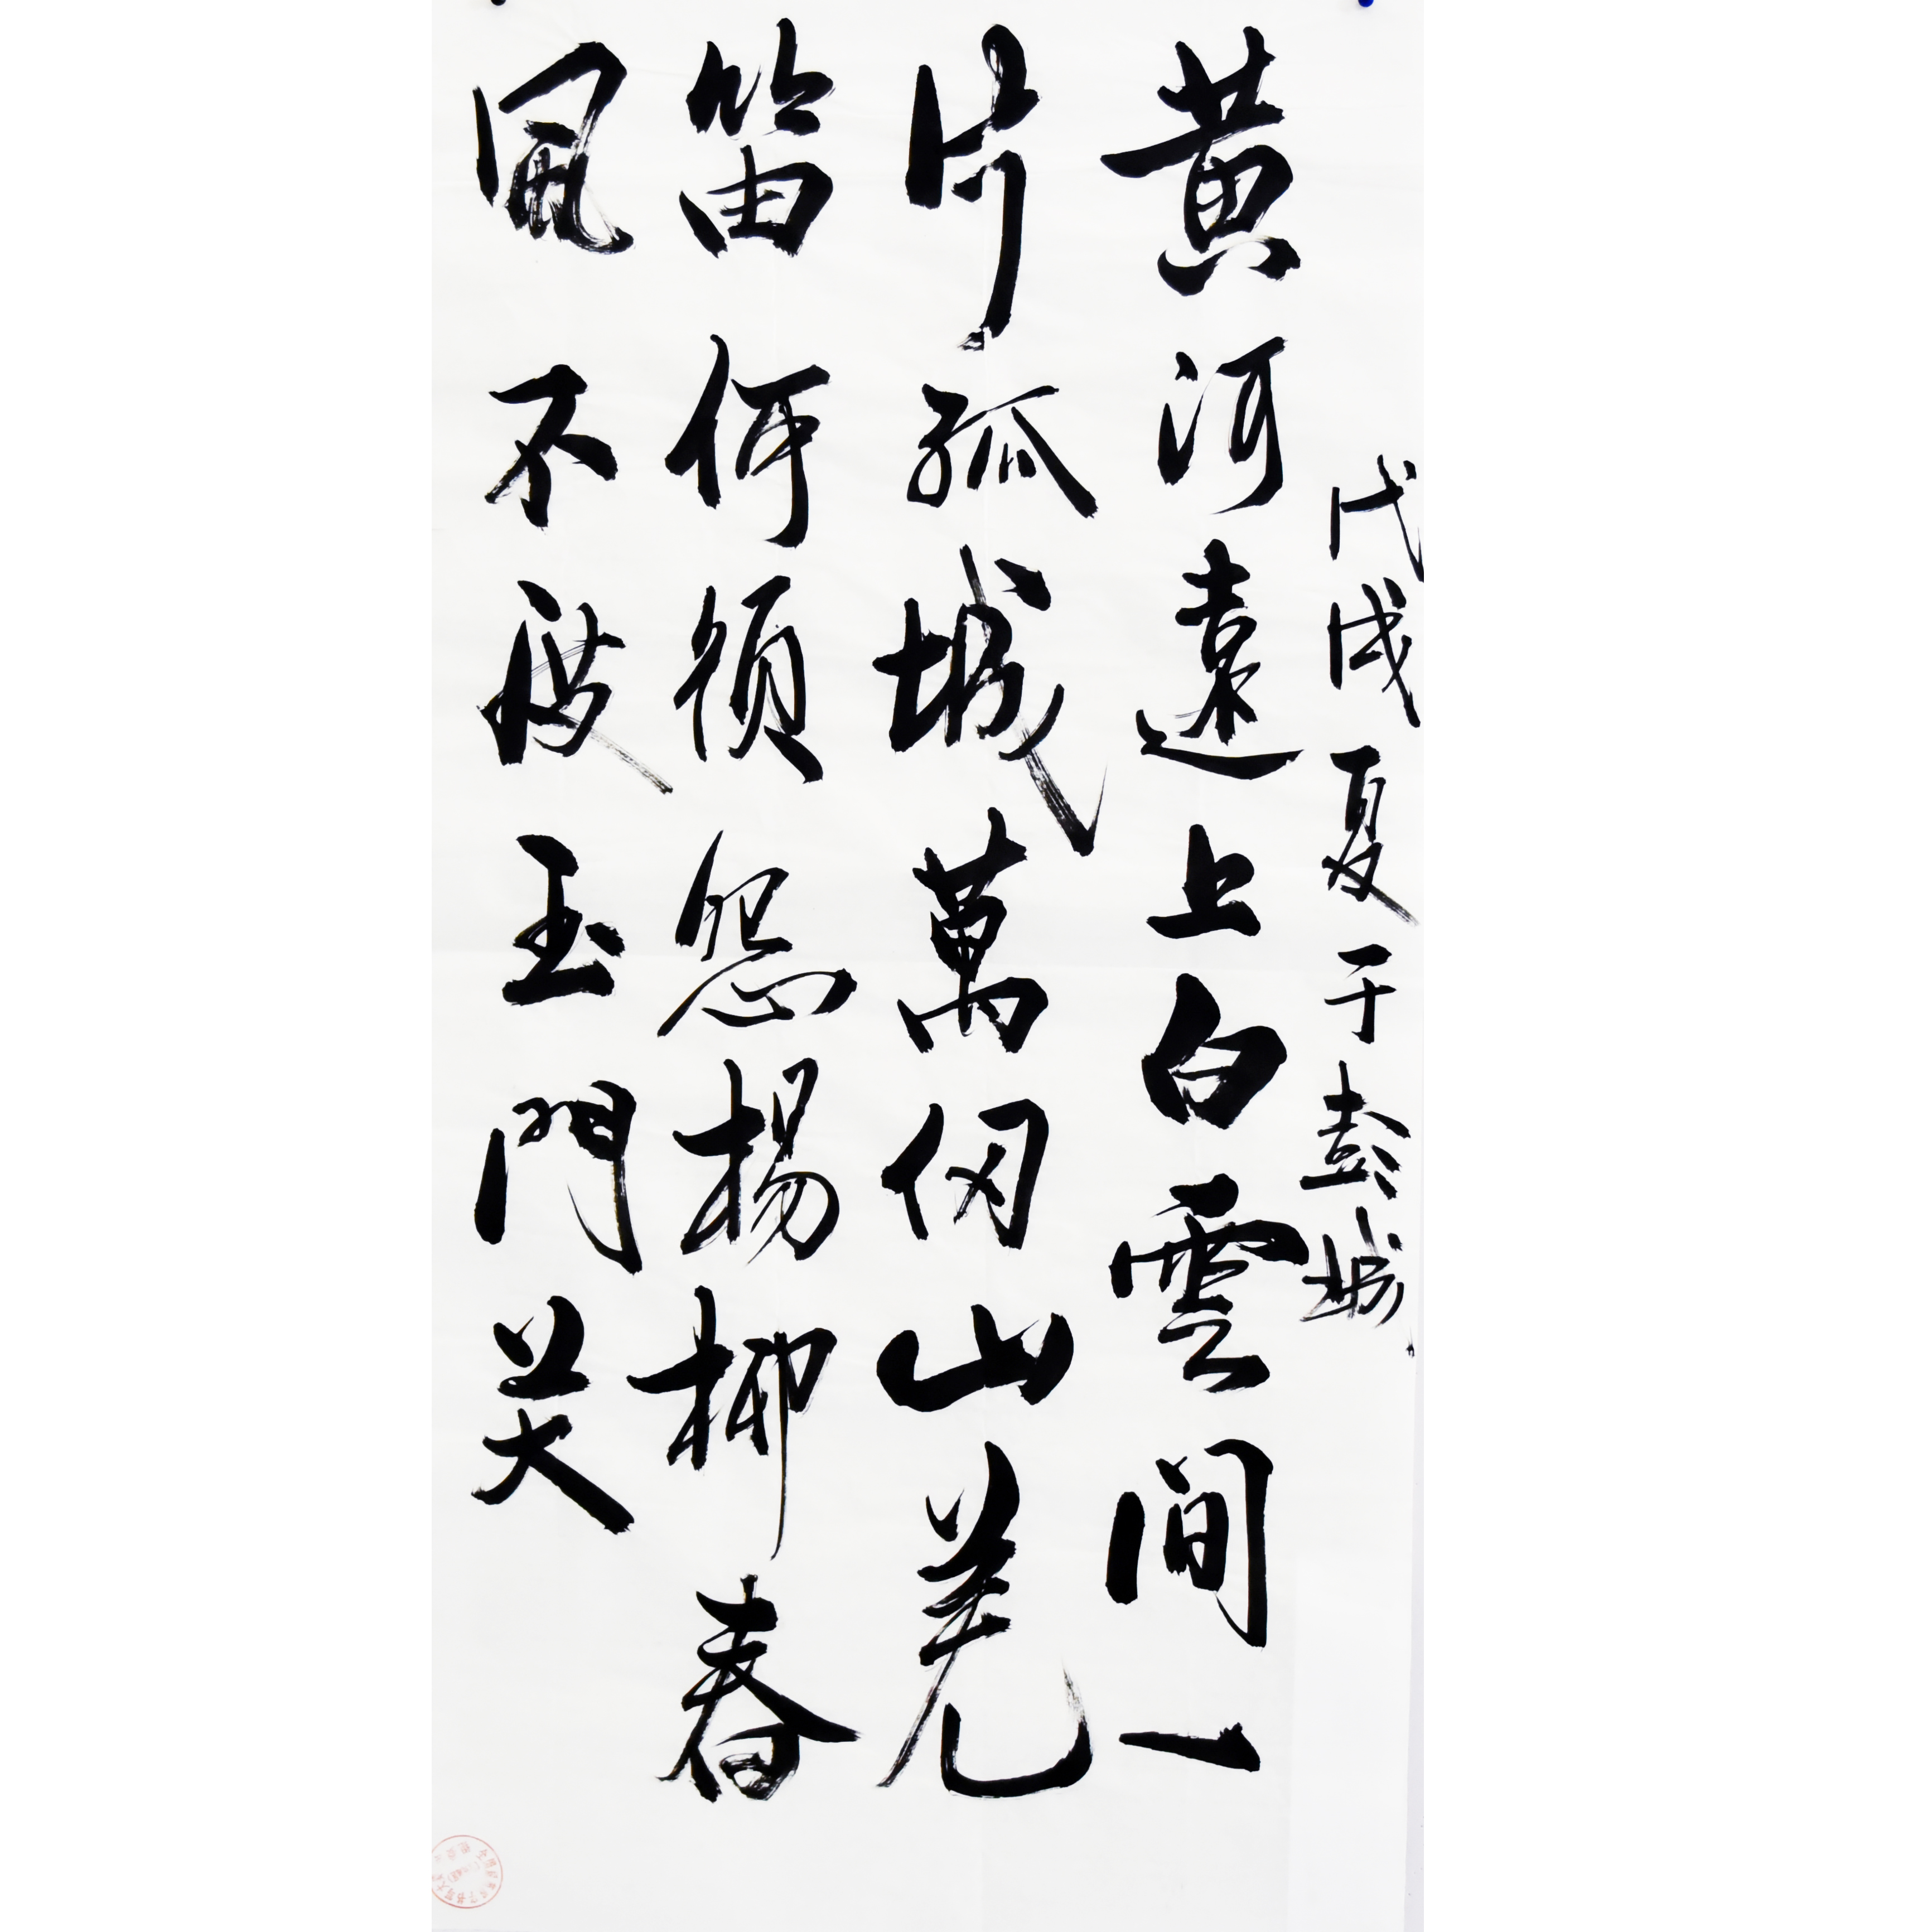 戊戌夏于彭城
黄河遠上白雲間一
片孤城萬仞山羌
笛何須怨楊柳春
風不度玉門关